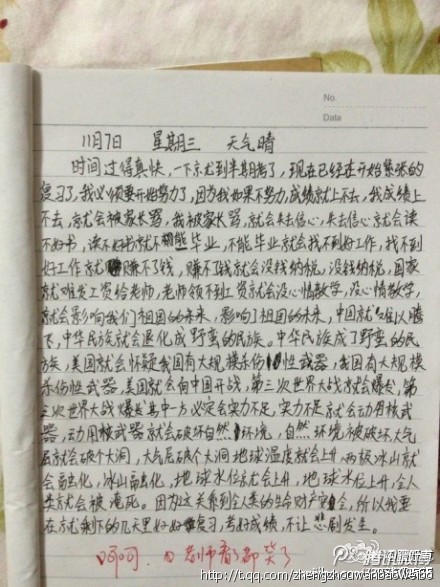 No.
Date
11月7日 星期三 天气晴
时间过得真快,一下就到半期考了,现在已经在开始紧张的
复习了,我必须要开始努力了,因为我如果不努力,成绩就上不去,我成绩上
不去,就会被家长骂,我被家长骂,就会失去信心,失去信心就会读
不好书,读不好书就不能毕业,不能毕业就会找不到好工作,找不到
好工作就赚不了钱,赚不了钱就会没钱纳税,没钱纳税,国家
就难发工资给老师,老师领不到工资就会没心情教学,没心情教学,
就会影响我们祖国的未来,影响了祖国的未来,中国就难以腾
飞,中华民族就会退化成野蛮的民族。中华民族成了野蛮的民
族,美国就会怀疑我国有大规模杀伤性武器,我国有大规模
杀伤性武器,美国就会向中国开战,第三次世界大战就会爆发,第
三次世界大战爆发其中一方必定会实力不足,实力不足就会动用核武
器,动用核武器就会破坏自然环境,自然环境被破坏,大气
层就会破个大洞,大气层破个大洞地球温度就会上升,两极冰山就
会融化,冰山融化,地球水位就会上升,地球水位上升,全人
类就会被淹死。因为这关系到全人类的生命财产安全,所以我要
在就剩下的几天里好好复习,考好成绩,不让悲剧发生。
呵呵. 老师看了都笑了
腾讯微博
http://t.qq.com/zhengzhongwai